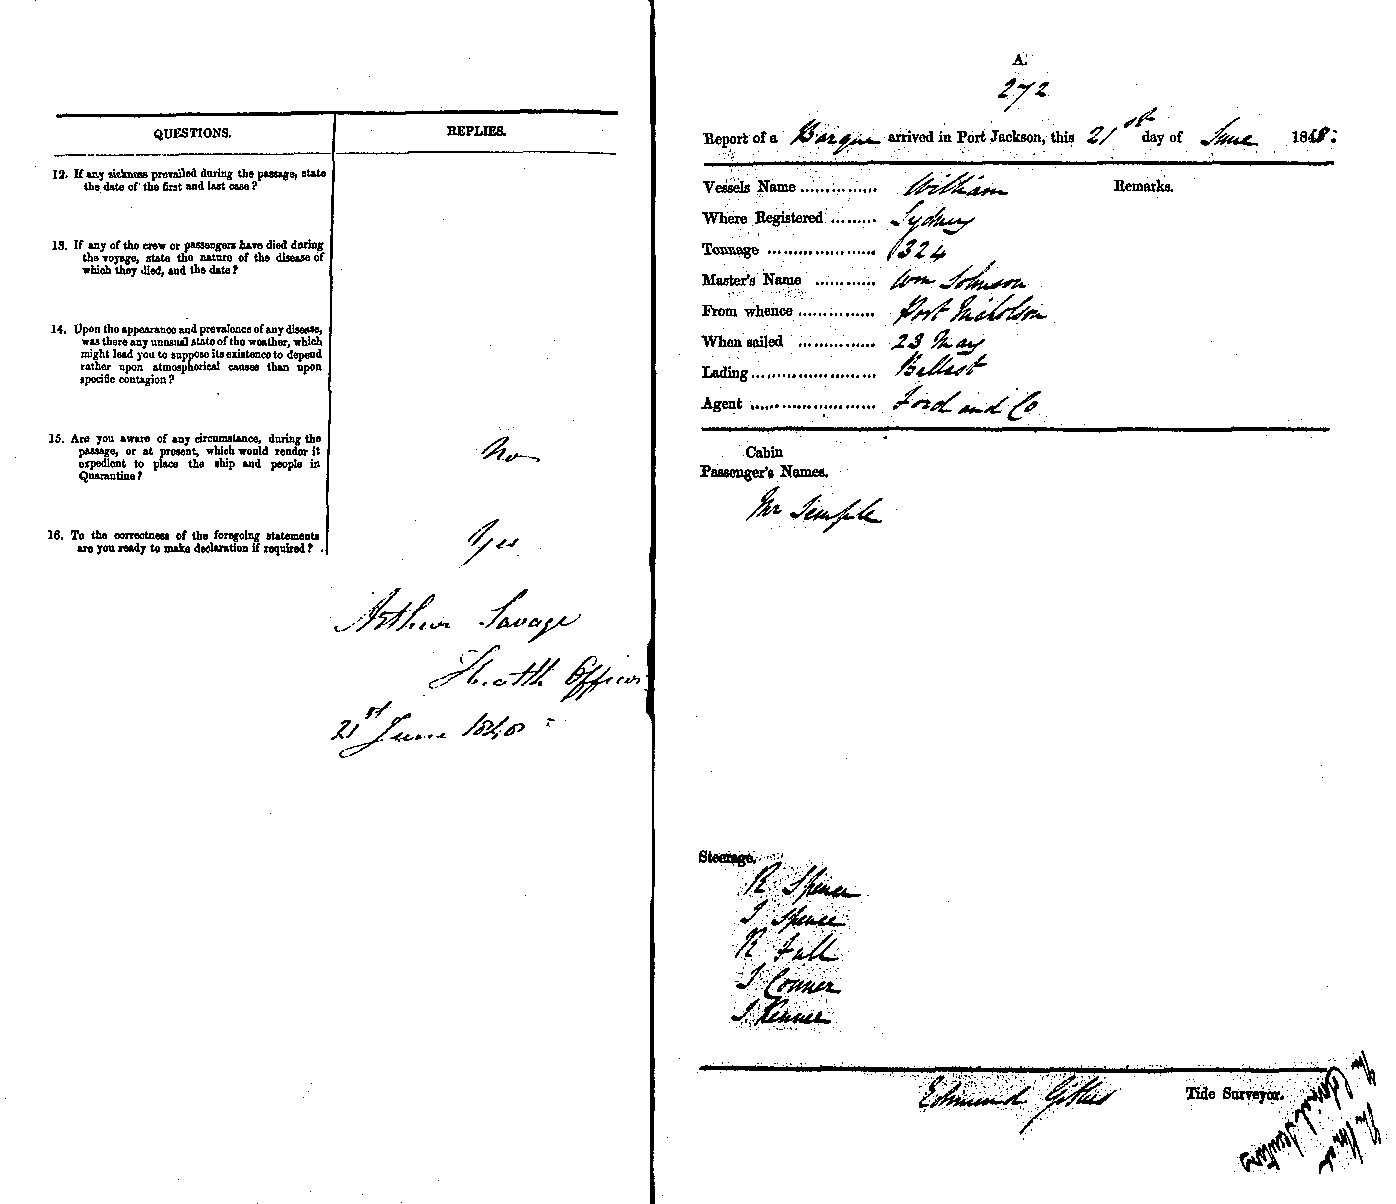 QUESTIONS.
REPLIES.
12. If any sickness prevailed during the passage, state
the date of the first and last case?
13. If any of the crew or passengers have died during
the voyage, state the nature of the disease of
which they died, and the date?
14. Upon the appearance and prevalence of any disease,
was there any unusual state of the weather, which
might lead you to suppose its existence to depend
rather upon atmospherical causes than upon
specific contagion?
15. Are you aware of any circumstance, during the
passage, or at present, which would render it
expedient to place the ship and people in
Quarantine?
No
16. To the correctness of the foregoing statements
are you ready to make declaration if required?
Yes
Arthur Savage
Health Officer
21st June 1848
A.
272
Report of a Barque arrived in Port Jackson, this 21st day of June 1848:
Vessels Name ............... William
Remarks.
Where Registered ......... Sydney
Tonnage ..................... 324
Master's Name ............ Wm Johnson
From whence ............... Port Nicholson
When sailed ............... 23 May
Lading........................ Ballast
Agent ........................ Ford and Co
Cabin
Passenger's Names.
Mr Temple
Steerage.
R Spence
J Spence
R Fall
J Conner
J Kenner
Edmund Tide Surveyor.